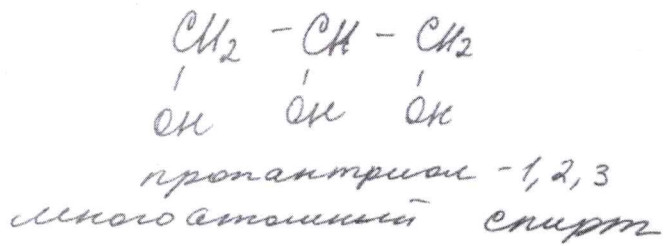 CH2 - CH - CH2
OH OH OH
пропантриол - 1, 2, 3
многоатомный спирт